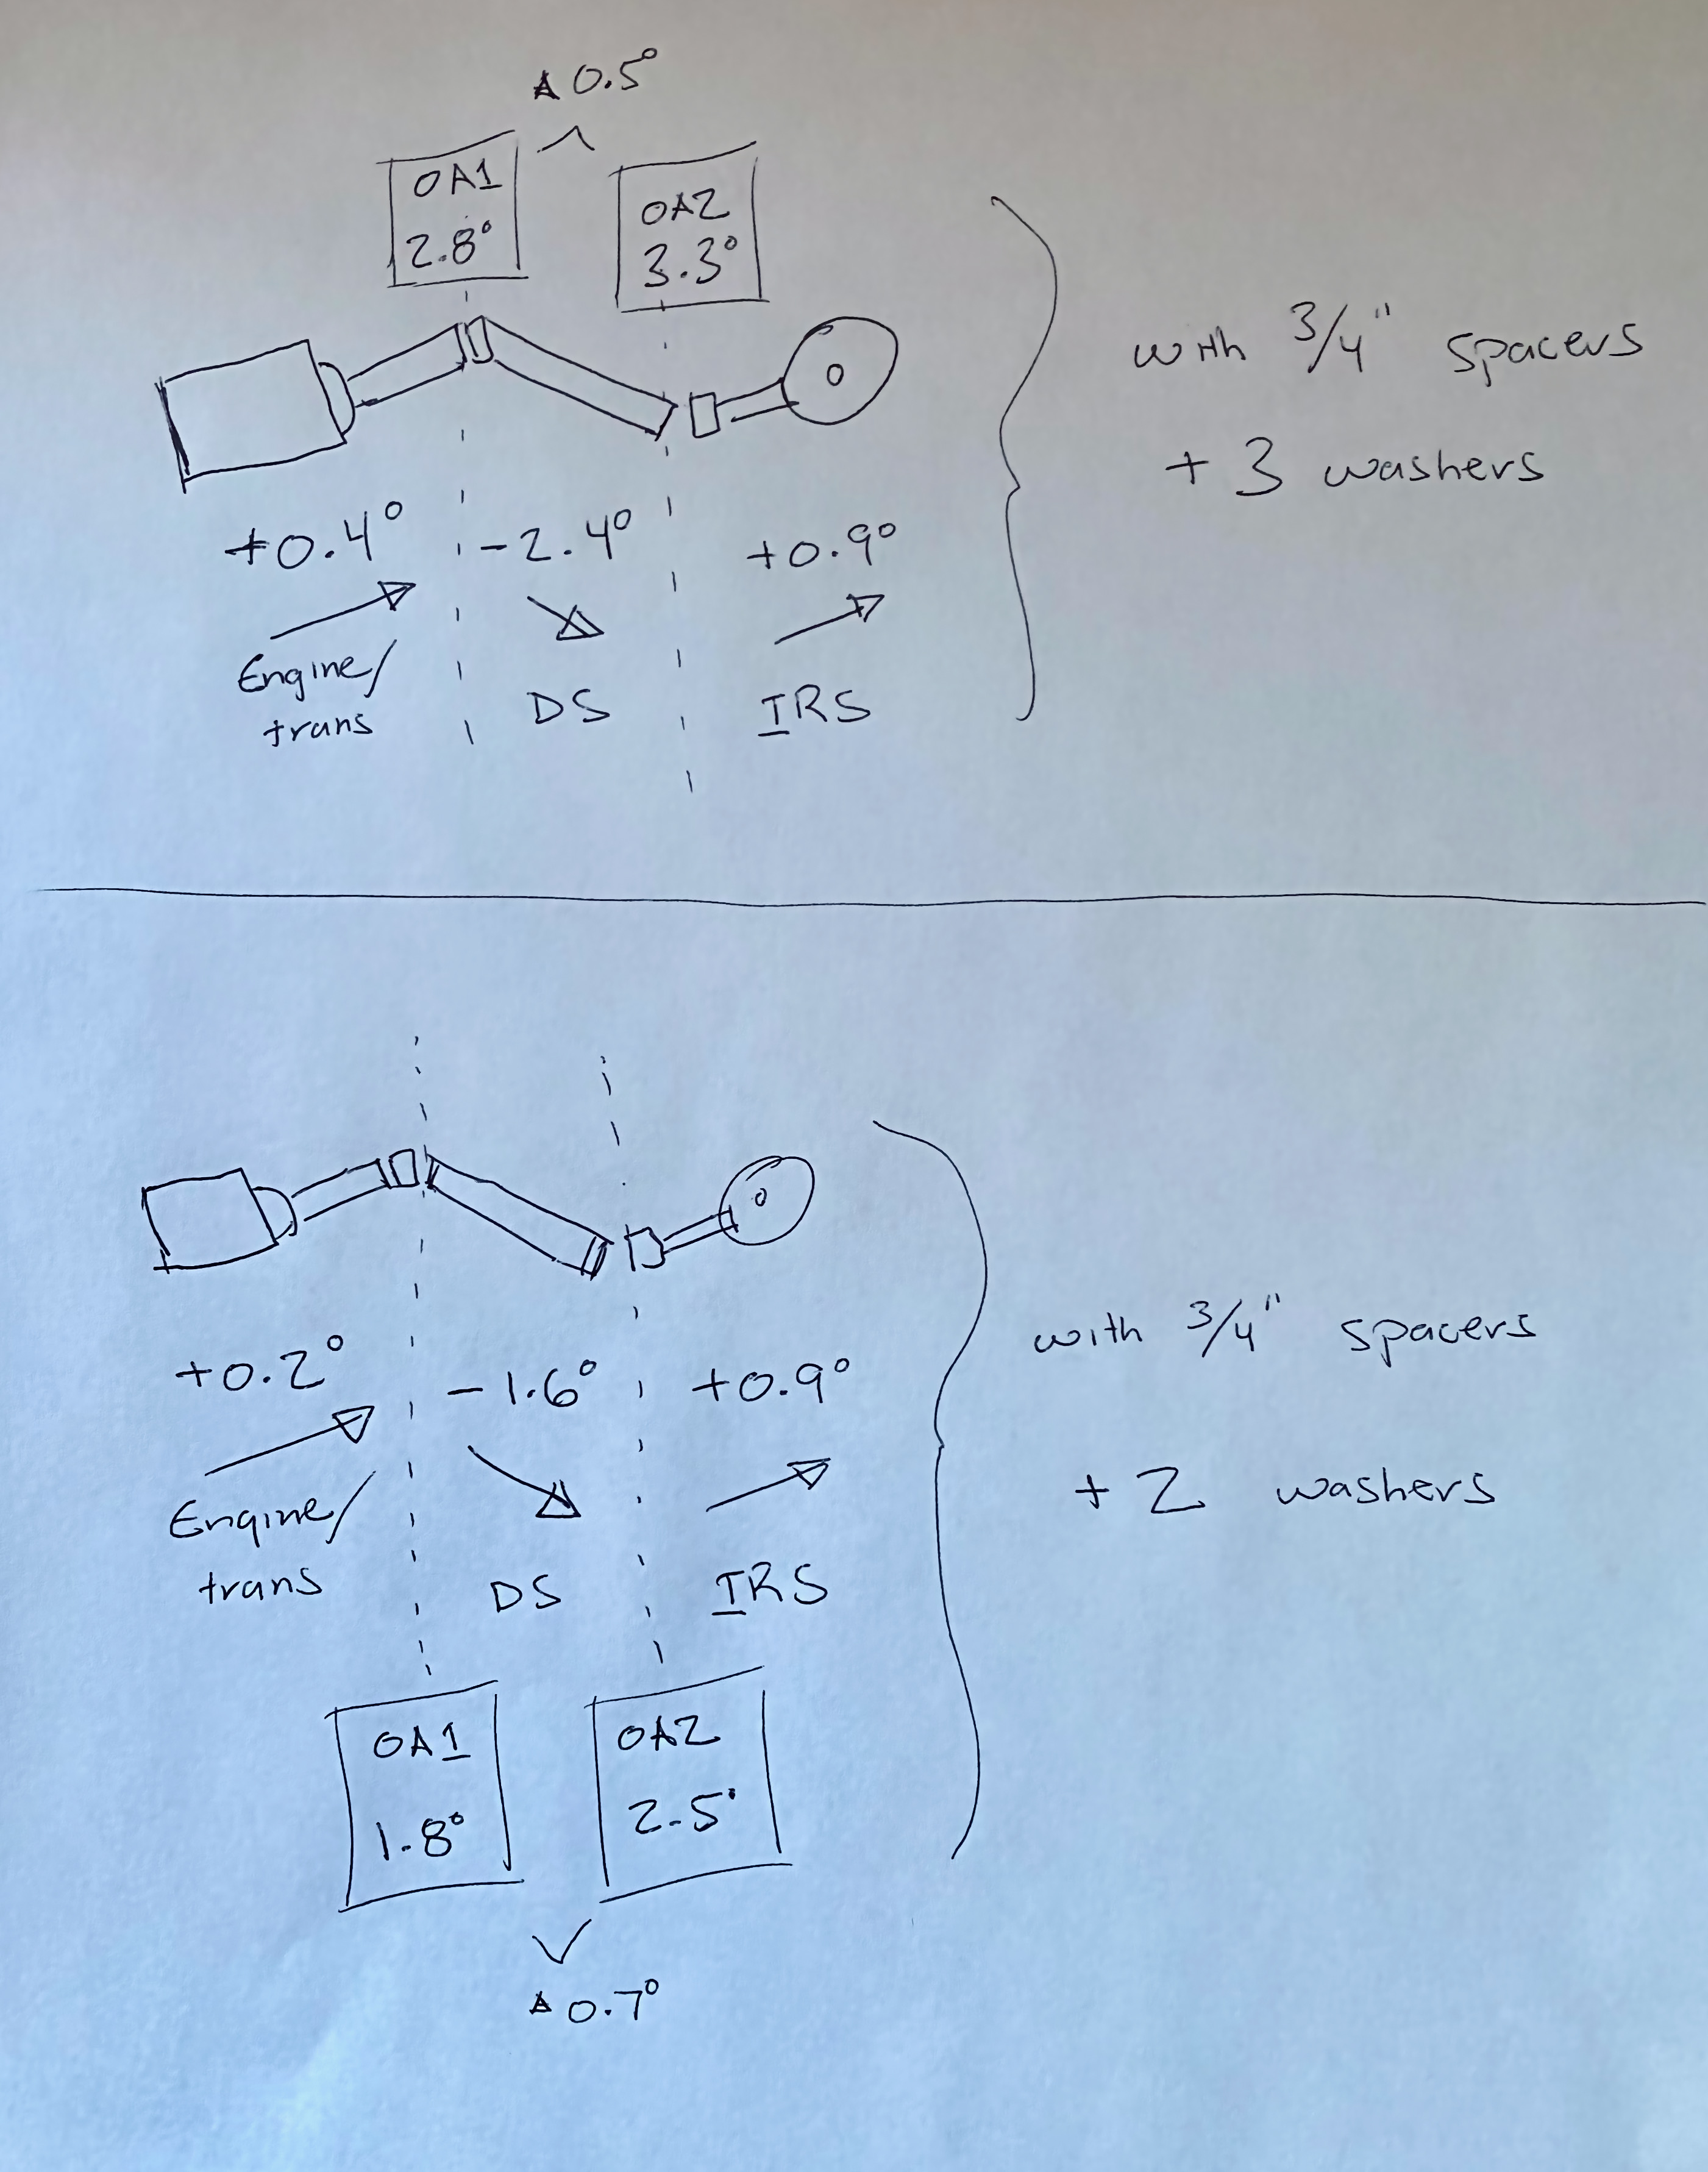 Δ 0.5°
OA1
2.8°
OA2
3.3°
with 3/4" spacers
+ 3 washers
+0.4°
-2.4°
+0.9°
Engine/
trans
DS
IRS
+0.2°
-1.6°
+0.9°
with 3/4" spacers
+ 2 washers
Engine/
trans
DS
IRS
OA1
1.8°
OA2
2.5°
Δ 0.7°